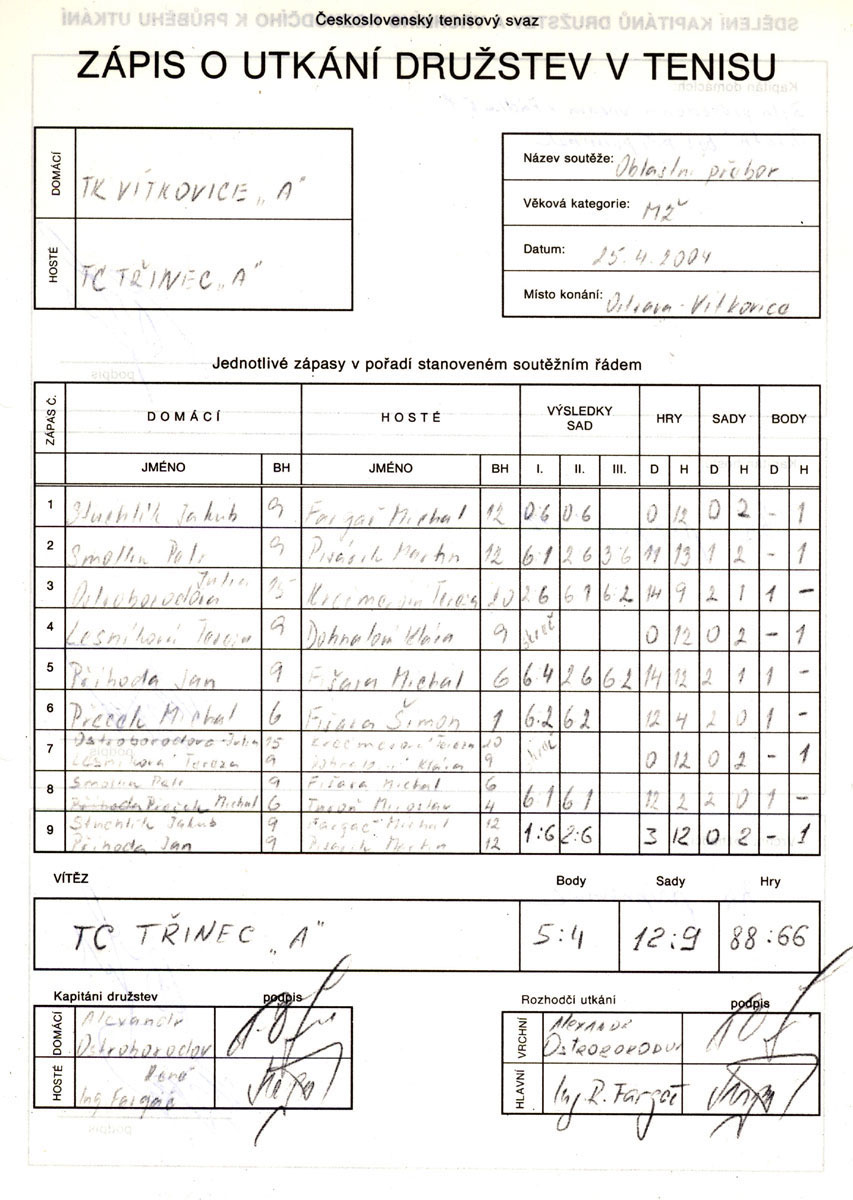 Československý tenisový svaz
ZÁPIS O UTKÁNÍ DRUŽSTEV V TENISU
DOMÁCÍ TK VÍTKOVICE „A"
HOSTÉ TC TŘINEC „A"
Název soutěže: Oblastní přebor
Věková kategorie: MŽ
Datum: 25.4.2004
Místo konání: Ostrava-Vítkovice
Jednotlivé zápasy v pořadí stanoveném soutěžním řádem
ZÁPAS Č. DOMÁCÍ HOSTÉ VÝSLEDKY SAD HRY SADY BODY
JMÉNO BH JMÉNO BH I. II. III. D H D H D H
1 Stuchlík Jakub 9 Fargač Michal 12 0:6 0:6 0 12 0 2 - 1
2 Smolka Petr 9 Pisárik Martin 12 6:1 2 6 3:6 11 13 1 2 - 1
3 Ostroborodova Julia 15 Krečmerová Tereza 20 2:6 6 1 6:2 14 9 2 1 1 -
4 Lesníková Tereza 9 Dohnalová Klára 9 skreč 0 12 0 2 - 1
5 Příhoda Jan 9 Fišara Michal 6 6:4 2 6 6 2 14 12 2 1 1 -
6 Preček Michal 6 Fišara Šimon 1 6:2 6 2 12 4 2 0 1 -
7 Ostroborodova Julia 15 Krečmerová Tereza 20
Lesníková Tereza 9 Dohnalová Klára 9 skreč 0 12 0 2 - 1
8 Smolka Petr 9 Fišara Michal 6
Příhoda Preček Michal 6 Miroslav 4 6:1 6 1 12 2 2 0 1 -
9 Stuchlík Jakub 9 Fargač Michal 12
Příhoda Jan 9 Pisárik Martin 12 1:6 2:6 3 12 0 2 - 1
VÍTĚZ Body Sady Hry
TC TŘINEC „A" 5:4 12:9 88:66
Kapitáni družstev podpis
DOMÁCÍ Alexandr
Ostroborodov
HOSTÉ René
Ing Fargač
Rozhodčí utkání podpis
VRCHNÍ Alexandr
Ostroborodov
HLAVNÍ Ing. R. Fargač